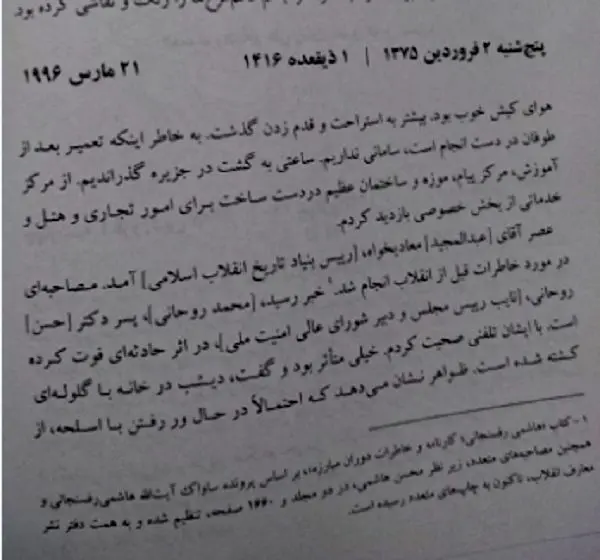 را رنگ و نقاشی کرده بود.
پنج‌شنبه ۲ فروردین ۱۳۷۵ | ۱ ذیقعده ۱۴۱۶ ۲۱ مارس ۱۹۹۶
هوای کیش خوب بود. بیشتر به استراحت و قدم زدن گذشت. به خاطر اینکه تعمیر بعد از
طوفان در دست انجام است، سامانی نداریم. ساعتی به گشت در جزیره گذراندیم. از مرکز
آموزش، مرکز پیام، موزه و ساختمان عظیم دردست ساخت برای امور تجاری و هتل و
خدماتی از بخش خصوصی بازدید کردم.
عصر آقای [عبدالمجید] معادیخواه، [رییس بنیاد تاریخ انقلاب اسلامی] آمد. مصاحبه‌ای
در مورد خاطرات قبل از انقلاب انجام شد.۱ خبر رسید، [محمد روحانی]، پسر دکتر [حسن]
روحانی، [نایب رییس مجلس و دبیر شورای عالی امنیت ملی]، در اثر حادثه‌ای فوت کرده
است. با ایشان تلفنی صحبت کردم. خیلی متأثر بود و گفت، دیشب در خانه با گلوله‌ای
کشته شده است. ظواهر نشان می‌دهد که احتمالاً در حال ور رفتن با اسلحه، از
۱- کتاب «هاشمی رفسنجانی؛ کارنامه و خاطرات دوران مبارزه»، بر اساس پرونده ساواک آیت‌الله هاشمی‌رفسنجانی و
همچنین مصاحبه‌های متعدد، زیر نظر محسن هاشمی، در دو مجلد و ۱۶۶۰ صفحه، تنظیم شده و به همت دفتر نشر
معارف انقلاب، تاکنون به چاپ‌های متعدد رسیده است.